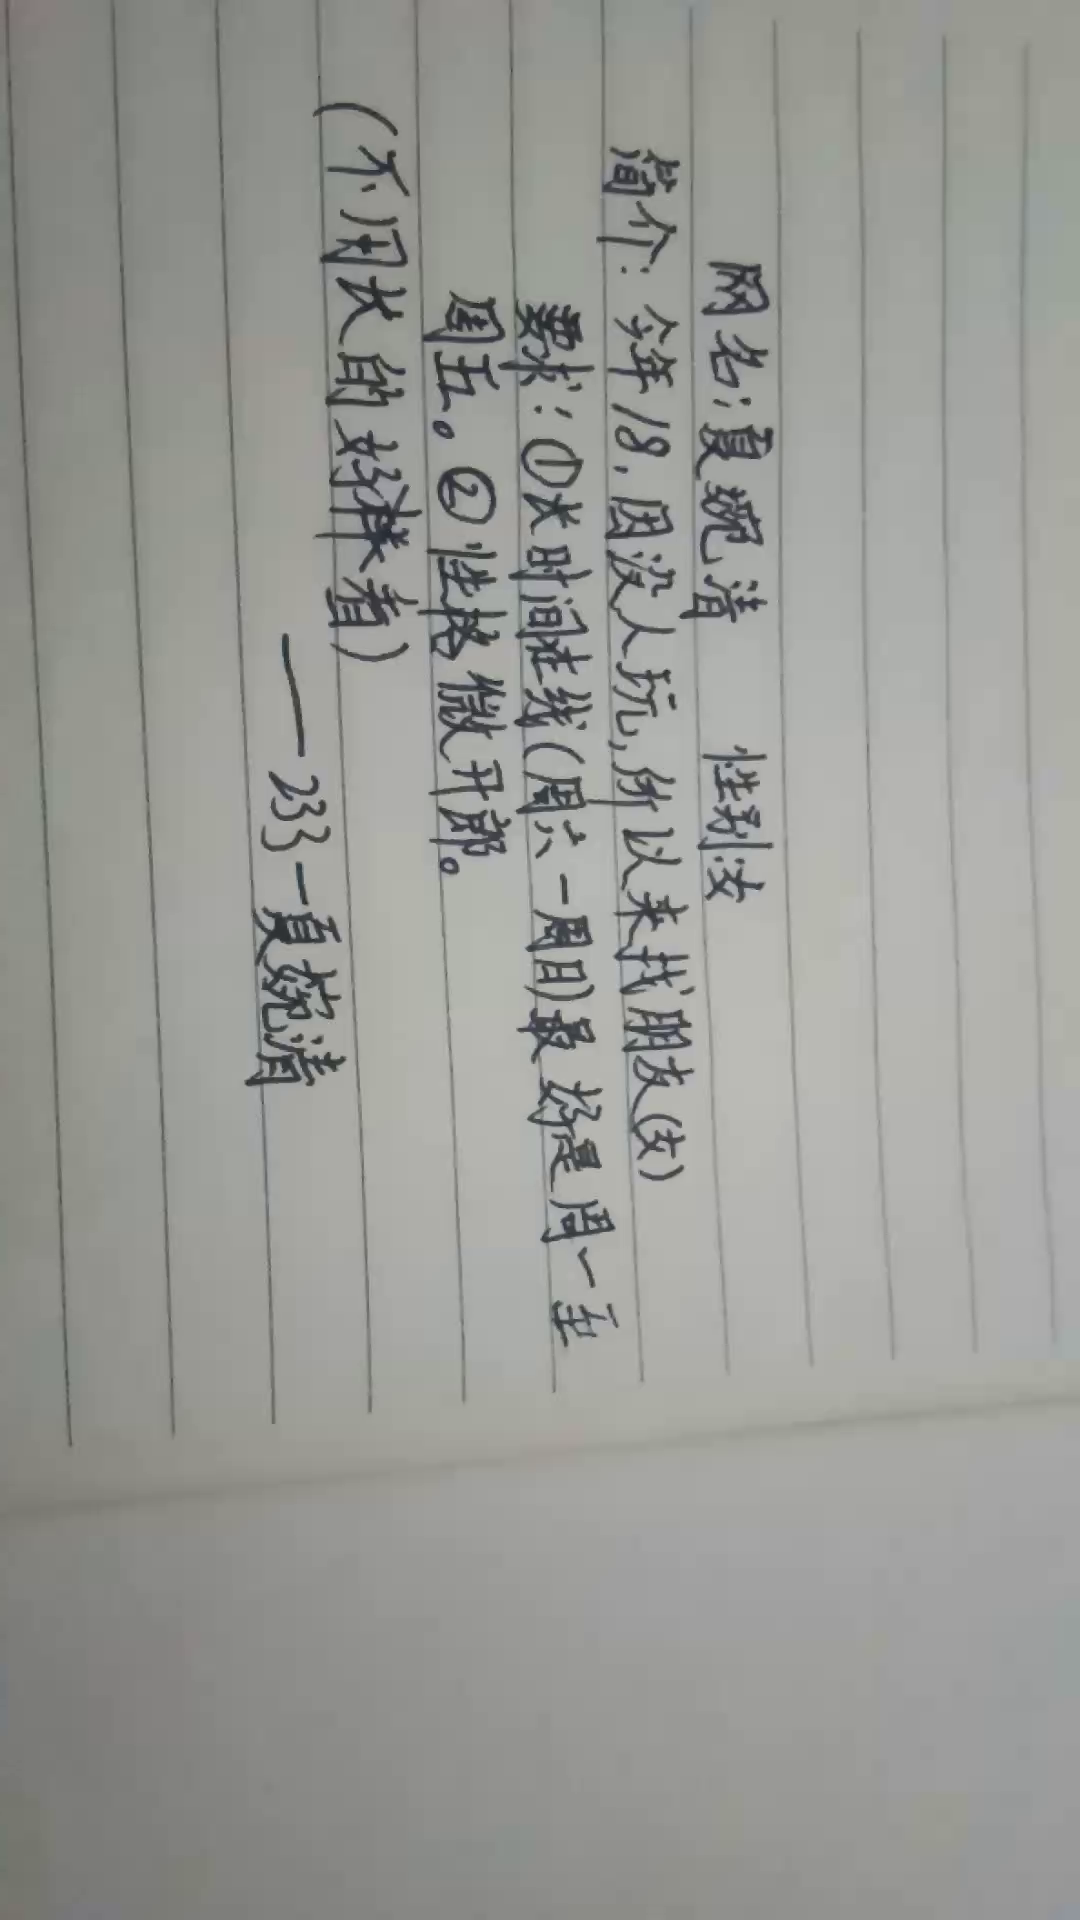 网名：夏婉清 性别：女
简介：今年18，因没人玩，所以来找朋友（女）
要求：①长时间在线（周六一周日）最好是周一至
周五。②性格微开郎。
（不用长的好样看）
——233一夏婉清